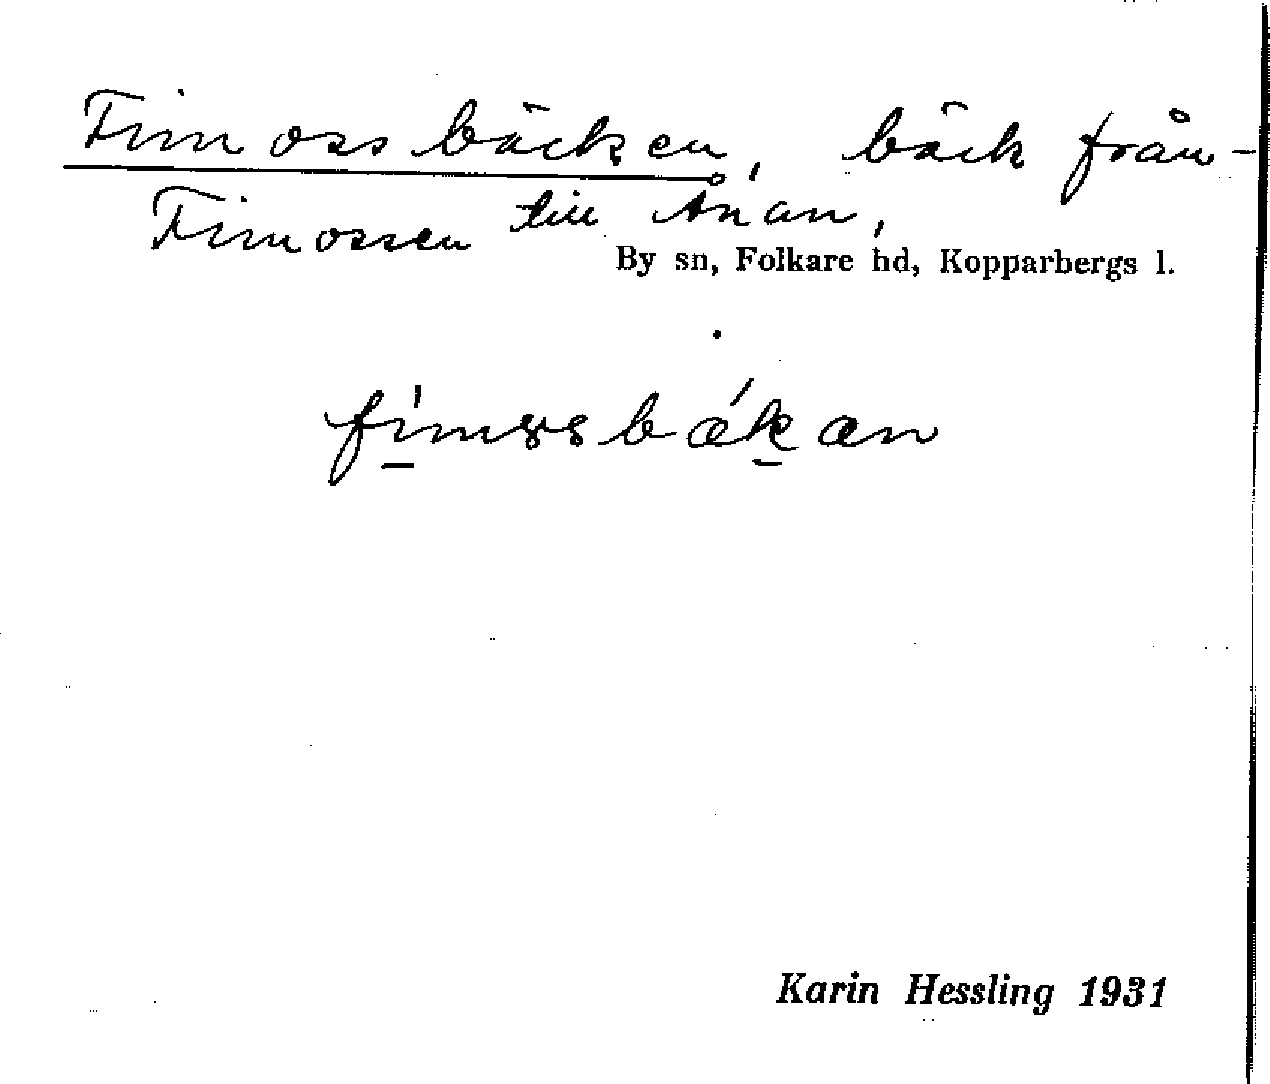 Fimossbäcken, bäck från
Fimossen till Ånan,
By sn, Folkare hd, Kopparbergs l.
Karin Hessling 1931